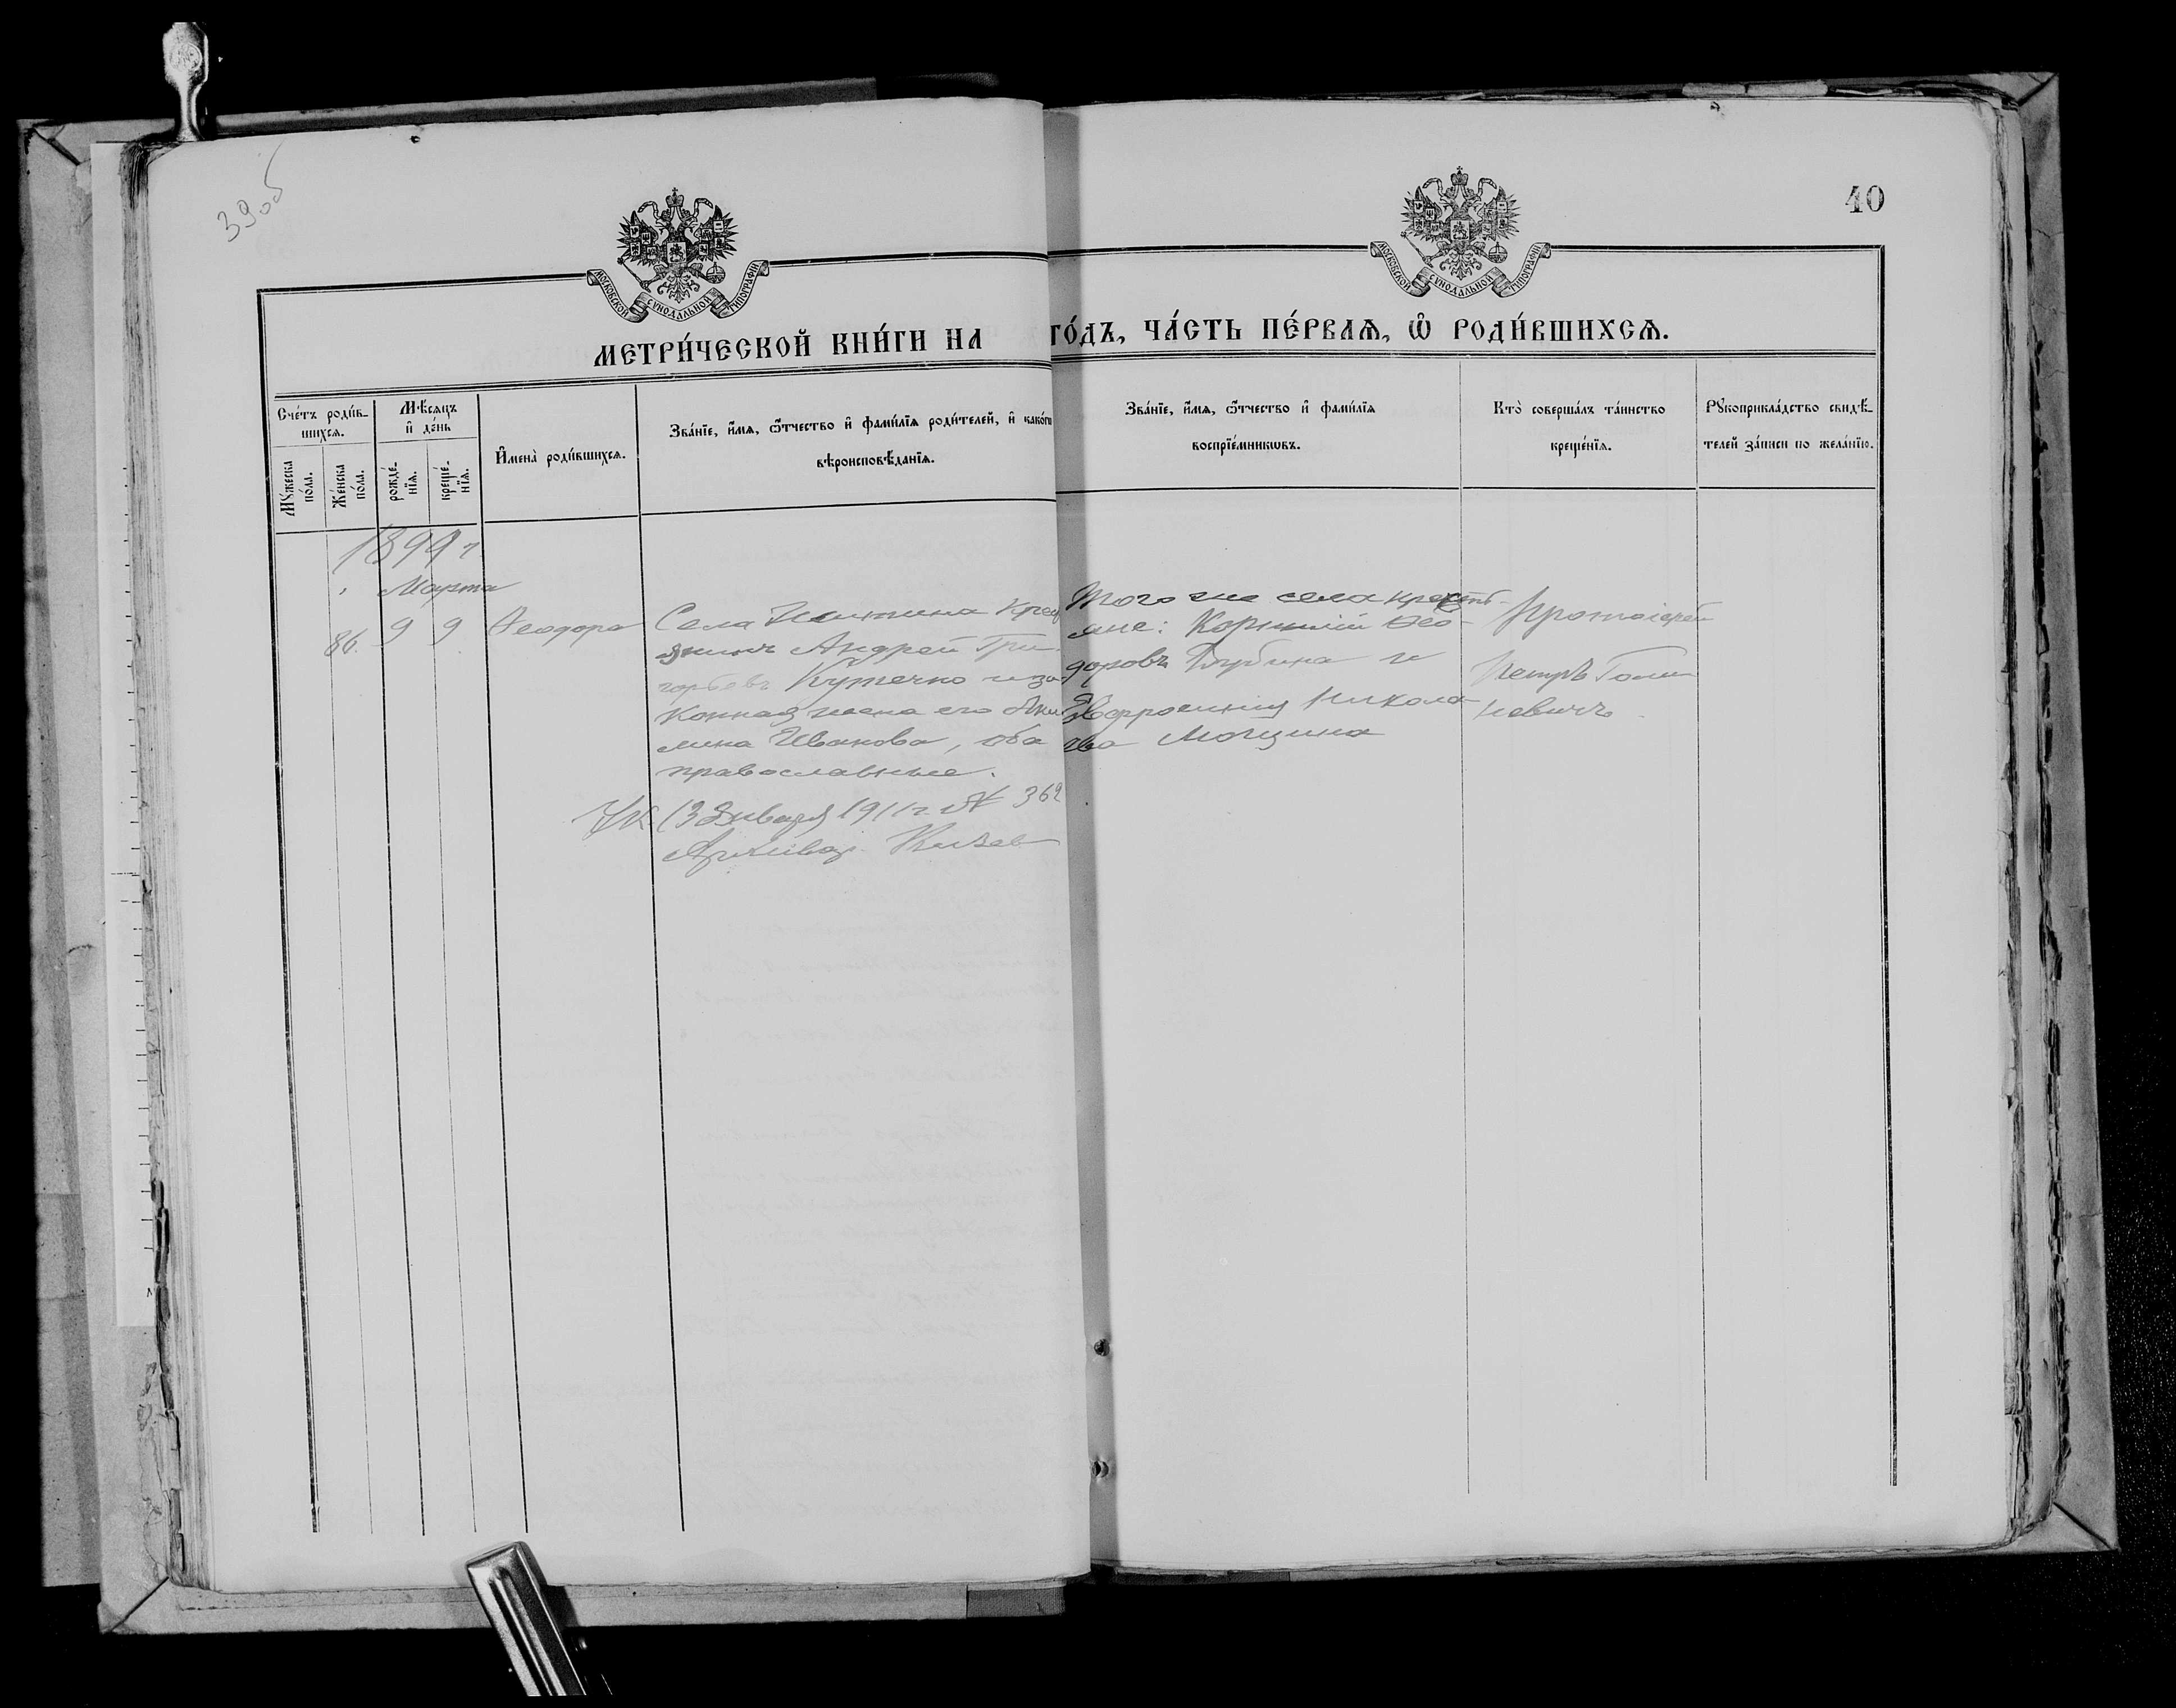 39об
40
МОСКОВСКОЙ СѴНОДАЛЬНОЙ ТИПОГРАФІИ
МОСКОВСКОЙ СѴНОДАЛЬНОЙ ТИПОГРАФІИ
МЕТРИ́ЧЕСКОЙ КНИ́ГИ НА ГО́ДЪ, ЧА́СТЬ ПЕ́РВАѦ, Ѡ҆ РОДИ́ВШИХСѦ.
Сче́тъ роди́в-
шихсѧ.
Мꙋ́жеска
по́ла.
Же́нска
по́ла.
Мѣ́сѧцъ
и҆ де́нь
рожде́-
нїѧ.
креще́-
нїѧ.
И҆мена̀ роди́вшихсѧ.
Зва́нїе, и҆́мѧ, ѻ҆́тчество и҆ фами́лїѧ роди́телей, и҆ како́гѡ
вѣроисповѣ́данїѧ.
Зва́нїе, и҆́мѧ, ѻ҆́тчество и҆ фами́лїѧ
воспрїе́мникѡвъ.
Кто̀ соверша́лъ та́инство
креще́нїѧ.
Рꙋкоприкла́дство свидѣ́-
телей за́писи по жела́нїю.
1899 г.
Марта
86. 9 9 Ѳеодора
Села
янинъ Андрей Гри-
горьевъ Кутечко и за-
конная жена его
лина Иванова, оба
православные.
13 Января 1911 г. № 362
Архивар.
Того же села кресть-
яне: Корнилій Ѳео-
доровъ и
Евфросинія Никола-
ева
Протоіерей
Петръ Гали-
невичъ